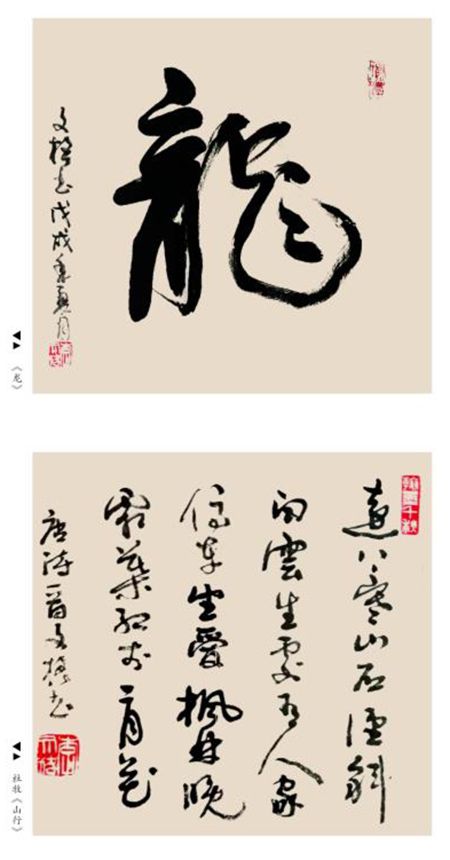 龍
书戊戌年夏月
《龙》
翰墨千秋
遠上寒山石徑斜
白雲生處有人家
停車坐愛楓林晚
霜葉紅於二月花
唐詩一首文书
杜牧《山行》